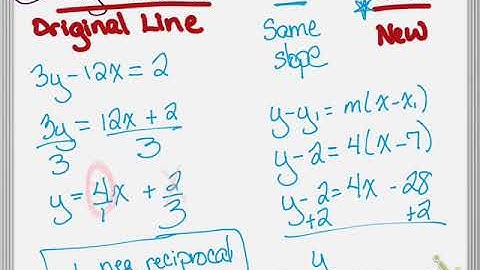 Original Line
Same
slope
New
3y-12x=2
3y = 12x + 2
3 3
y = 4/1 x + 2/3
neg reciprocal
y-y₁ = m(x-x₁)
y-2=4(x-7)
y-2=4x-28
+2 +2
y